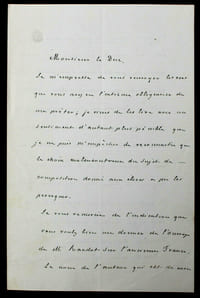 Monsieur le Duc,
Je m'empresse de vous renvoyer les vers
que vous avez eu l'extrême obligeance de
me prêter; je viens de les lire avec un
sentiment d'autant plus pénible que
je ne puis m'empêcher de reconnaître que
le choix malencontreux du sujet de
composition donné aux élèves a pu les
provoquer.
Je vous remercie de l'indication que
vous voulez bien me donner de l'ouvrage
de Mr sur l'ancienne France.
Le nom de l'auteur qui est de mon